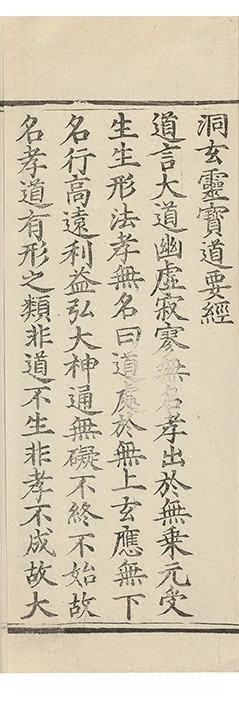 洞玄靈寶道要經
道言大道幽虛寂寥無名孝出於無乗元受
生生形法孝無名曰道處於無上玄應無下
名行高遠利益弘大神通無礙不終不始故
名孝道有形之類非道不生非孝不成故大